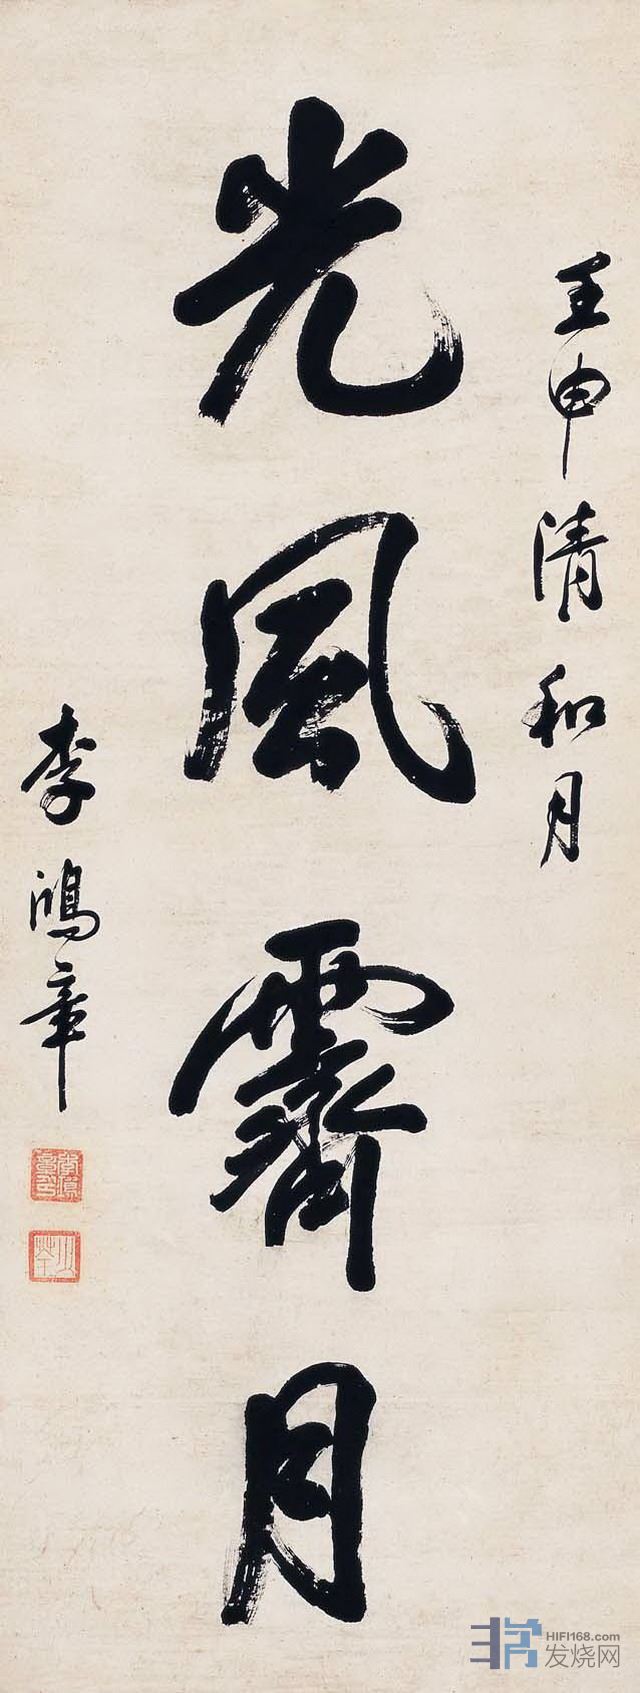 壬申清和月
光風霽月
李鴻章
HIFI168.com
发烧网